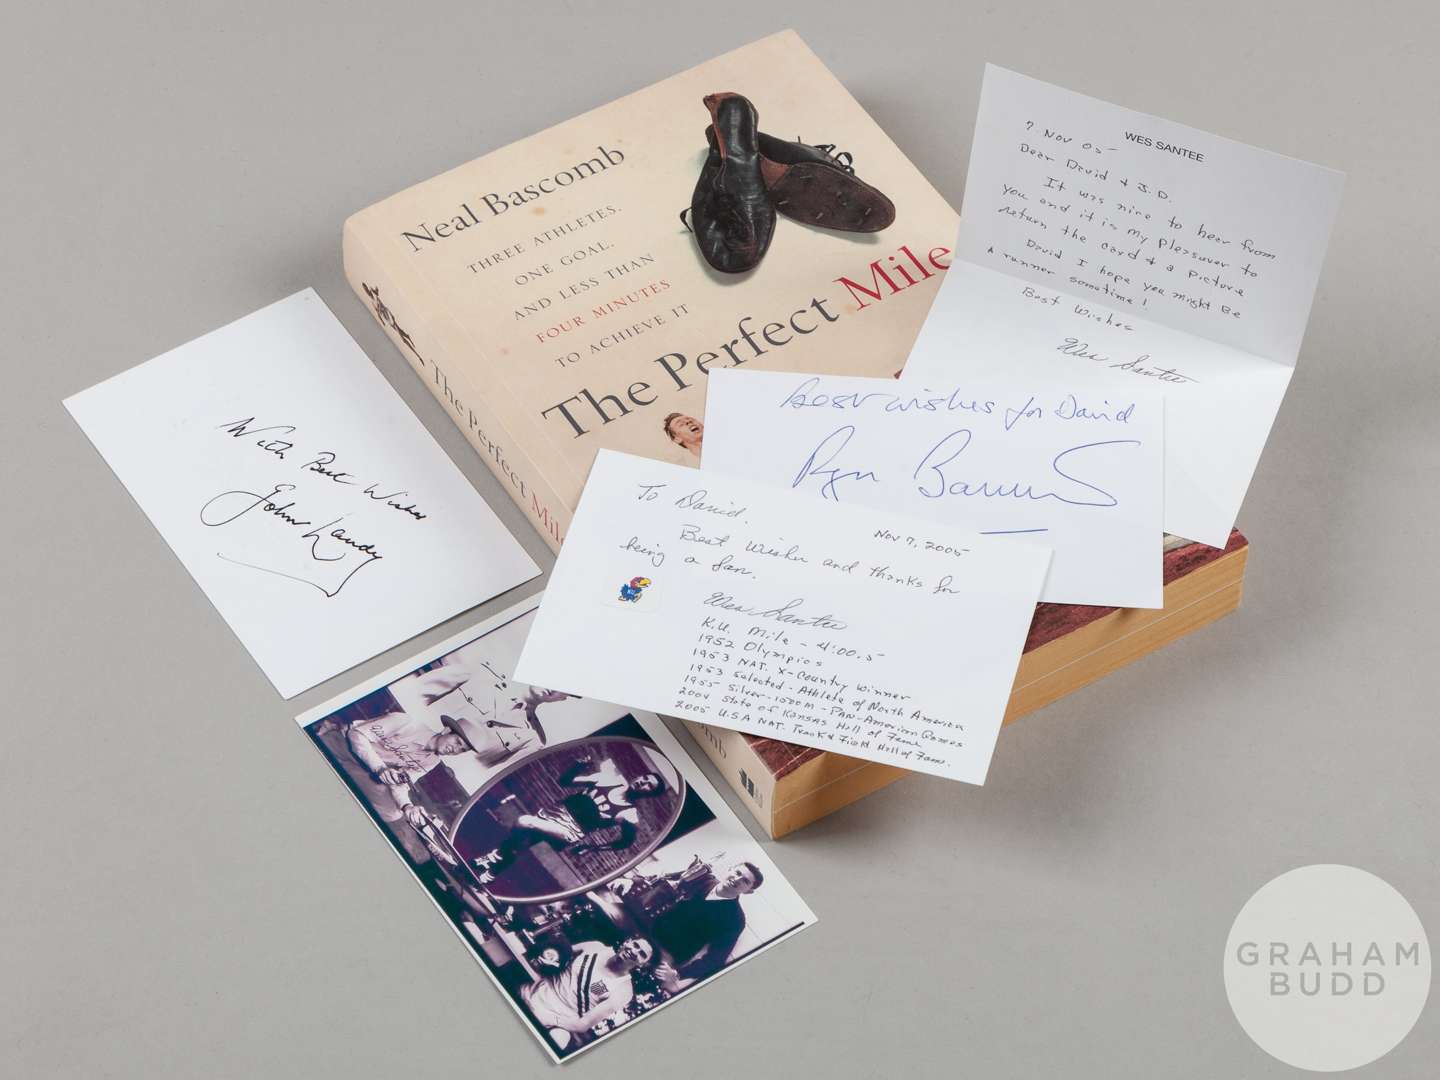 Neal Bascomb
THREE ATHLETES.
ONE GOAL.
AND LESS THAN
FOUR MINUTES
TO ACHIEVE IT
The Perfect Mile
The Perfect Mile
comb
WES SANTEE
7 Nov 05
Dear David & J.D.
It was nice to hear from
you and it is my pleasuver to
return the card & a picture
David I hope you might Be
A runner sometime!
Best Wishes
Wes Santee
With Best Wishes
John Landy
Best wishes for David
Roger Bannister
To David.
Nov 7, 2005
Best Wishes and thanks for
being a fan.
Wes Santee
K.U. Mile - 4:00.5
1952 Olympics
1953 NAT. X-Country Winner
1953 Selected - Athlete of North America
1955 Silver-1500M - PAN-American Games
2004 State of Kansas Hall of Fame
2005 U.S.A NAT. Track & Field Hall of Fame.
Wes Santee
GRAHAM
BUDD